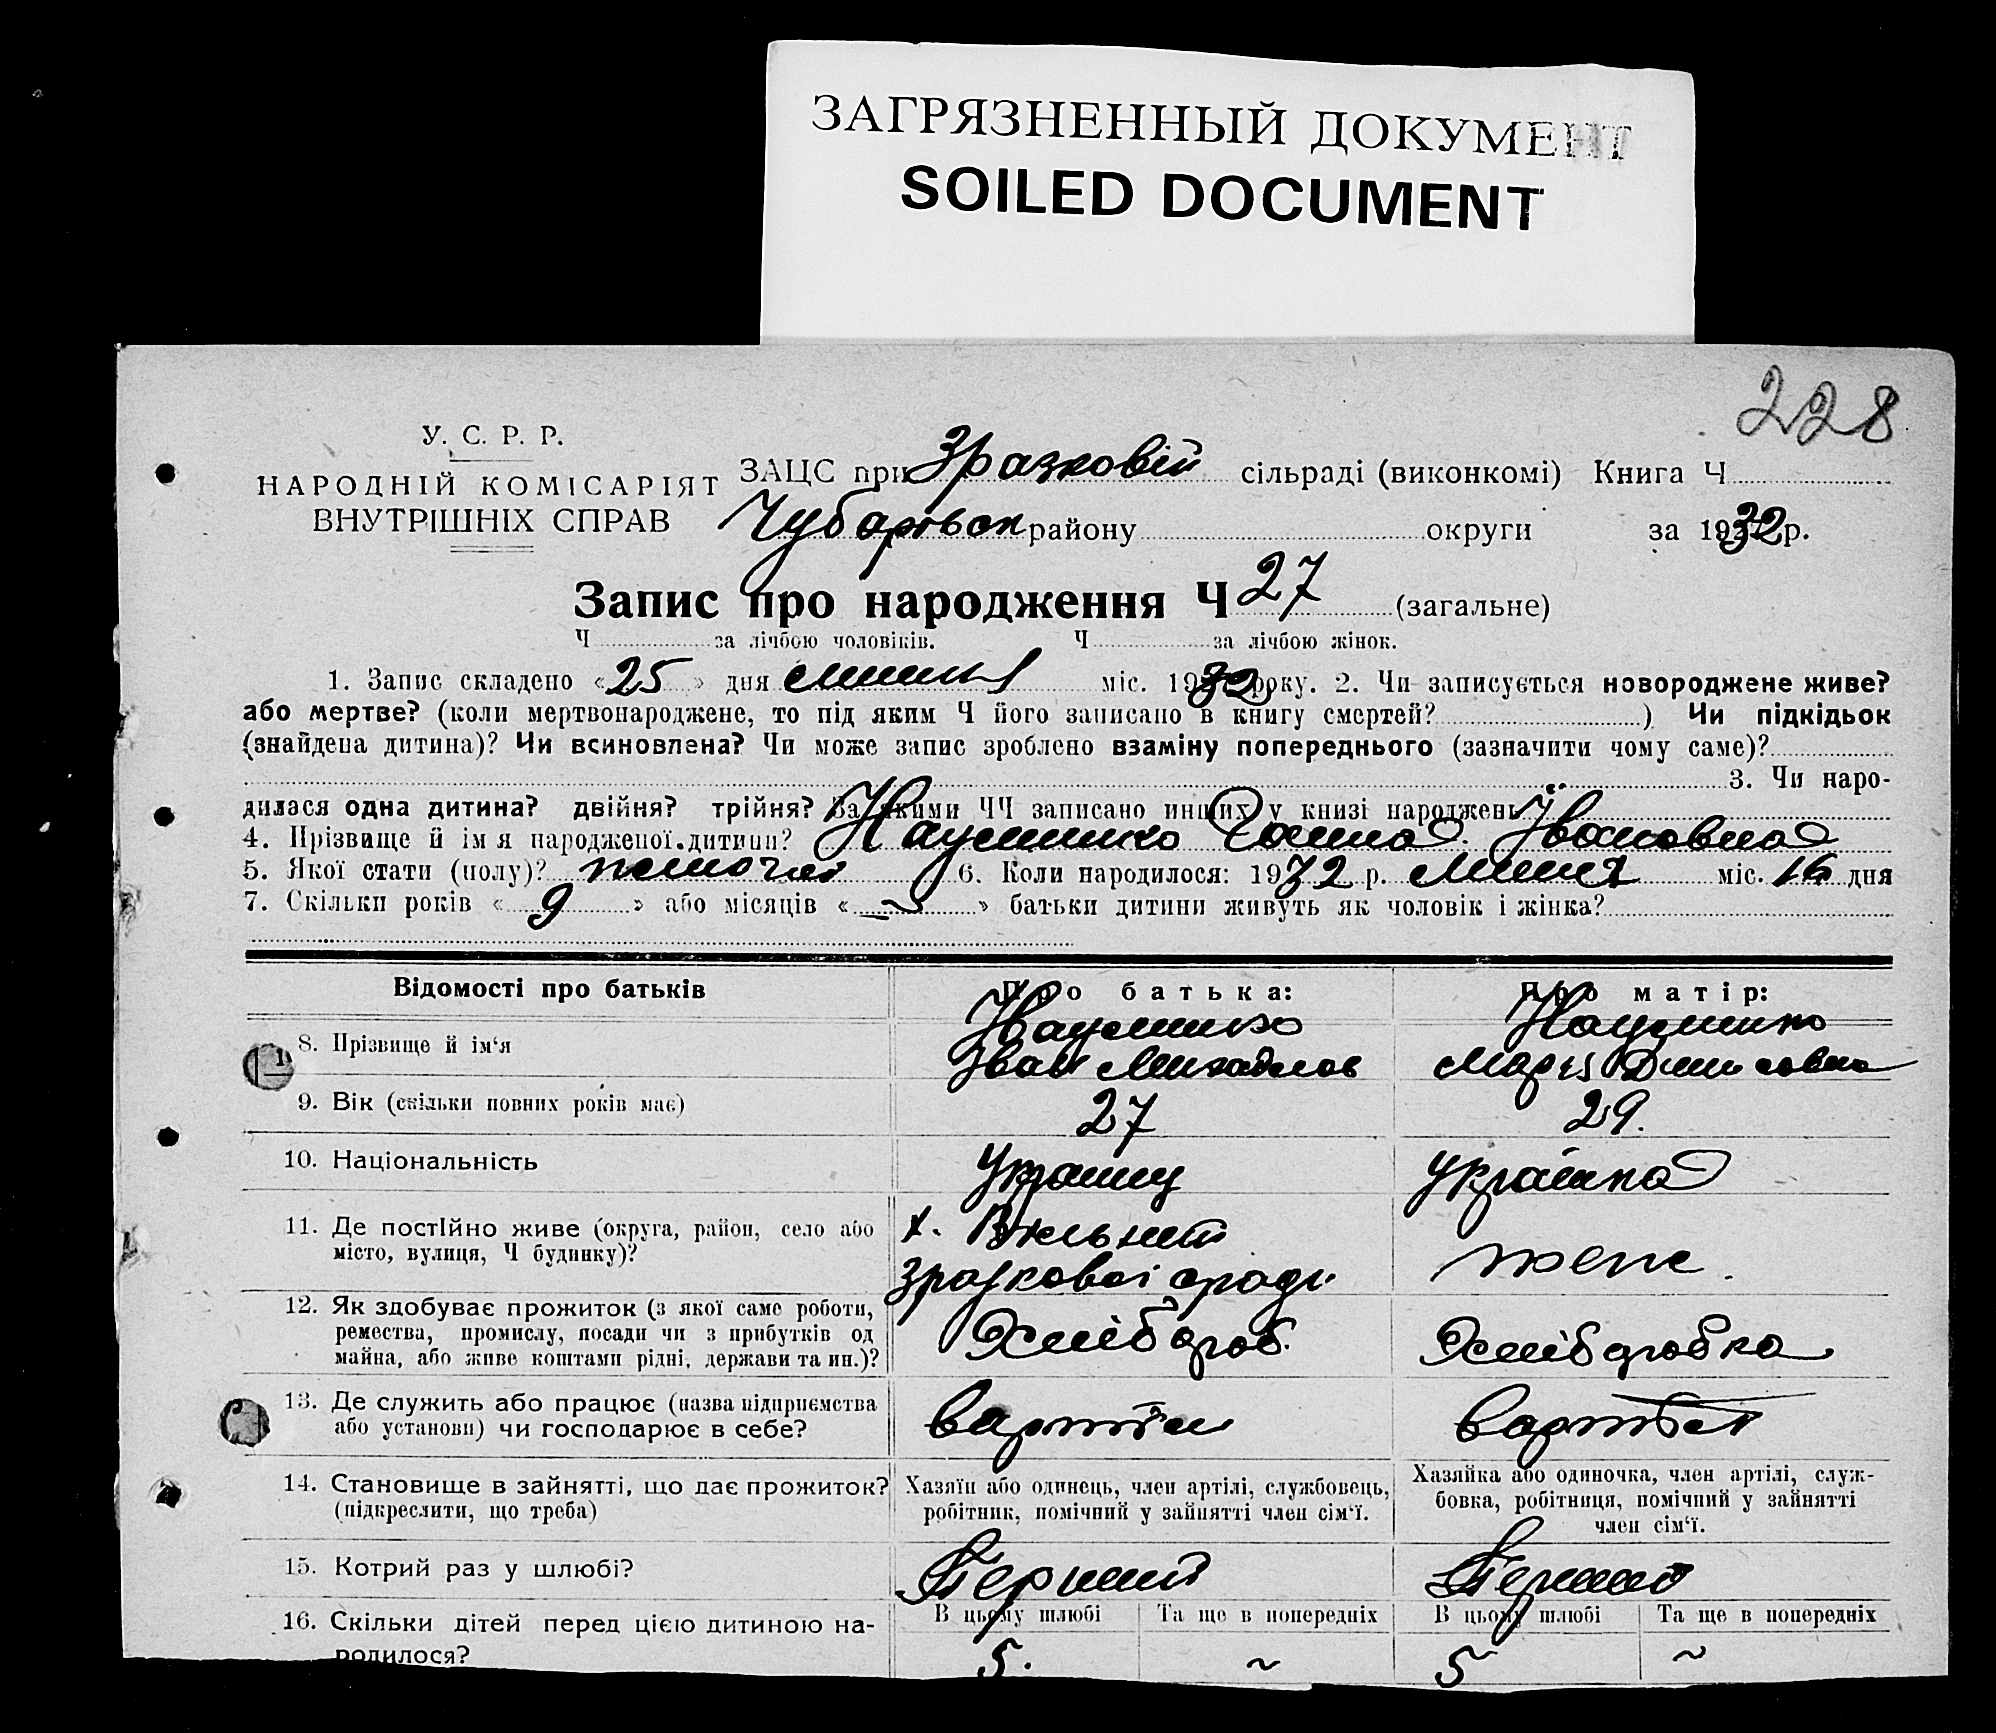 ЗАГРЯЗНЕННЫЙ ДОКУМЕНТ
SOILED DOCUMENT
228
У. С. Р. Р.
НАРОДНІЙ КОМІСАРІЯТ
ВНУТРІШНІХ СПРАВ
ЗАЦС при Зразковій сільраді (виконкомі) Книга Ч
Чубарівськ району округи за 1932 р.
Запис про народження Ч 27 (загальне)
Ч за лічбою чоловіків. Ч за лічбою жінок.
1. Запис складено «25» дня липня міс. 1932 року. 2. Чи записується новороджене живе?
або мертве? (коли мертвонароджене, то під яким Ч його записано в книгу смертей? ) Чи підкідьок
(знайдена дитина)? Чи всиновлена? Чи може запис зроблено взаміну попереднього (зазначити чому саме)?
3. Чи наро-
дилася одна дитина? двійня? трійня? За якими ЧЧ записано инших у книзі народжень?
4. Прізвище й ім я народженої дитини? Науменко Ганна Івановна
5. Якої стати (полу)? 6. Коли народилося: 1932 р. липня міс. 16 дня
7. Скільки років «9» або місяців «~» батьки дитини живуть як чоловік і жінка?
Відомості про батьків
Про батька:
Про матір:
8. Прізвище й ім‘я
Науменко
Іван Михайлов
Науменко
Марія Денисовна
9. Вік (скільки повних років має)
27
29.
10. Національність
Українц
українка
11. Де постійно живе (округа, район, село або
місто, вулиця, Ч будинку)?
х.
Зразкової сради
теж.
12. Як здобуває прожиток (з якої саме роботи,
ремества, промислу, посади чи з прибутків од
майна, або живе коштами рідні, держави та ин.)?
Хлібороб.
Хліборобка
13. Де служить або працює (назва підприємства
або установи) чи господарює в себе?
в артілі
в артілі
14. Становище в зайнятті, що дає прожиток?
(підкреслити, що треба)
Хазяїн або одинець, член артілі, службовець,
робітник, помічний у зайнятті член сім‘ї.
Хазяйка або одиночка, член артілі, служ-
бовка, робітниця, помічний у зайнятті
член сім‘ї.
15. Котрий раз у шлюбі?
Перший
Перший
16. Скільки дітей перед цією дитиною на-
родилося?
В цьому шлюбі
Та ще в попередніх
В цьому шлюбі
Та ще в попередніх
5.
~
5
~